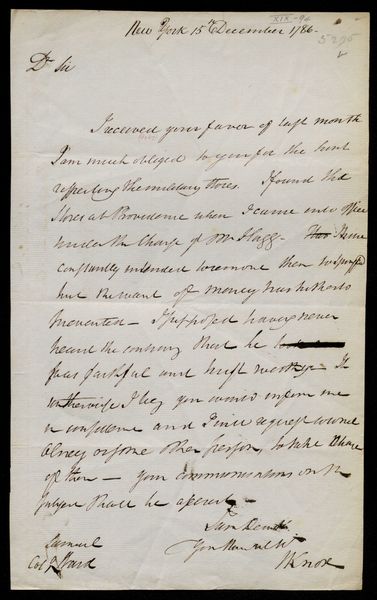 XIX.-94
New York 15th December 1786-
5295
Dr Sir
I received your favor of last month
I am much obliged to you for the hint
respecting the military stores. I found the
stores at Providence when I came into office
under the Charge of Mr Flagg- I have
constantly intended to remove them to Springfd
but the want of money has hitherto
prevented- I supposed having never
heard the contrary that he
was faithful and trust worthy- If
otherwise I beg you would inform me
in confidence and I will request
Olney or some other person, to take Charge
of them- your communications on the
subject shall be a secret-
I am Dear Sir
Your Hum
Samuel
Col Ward
HKnox